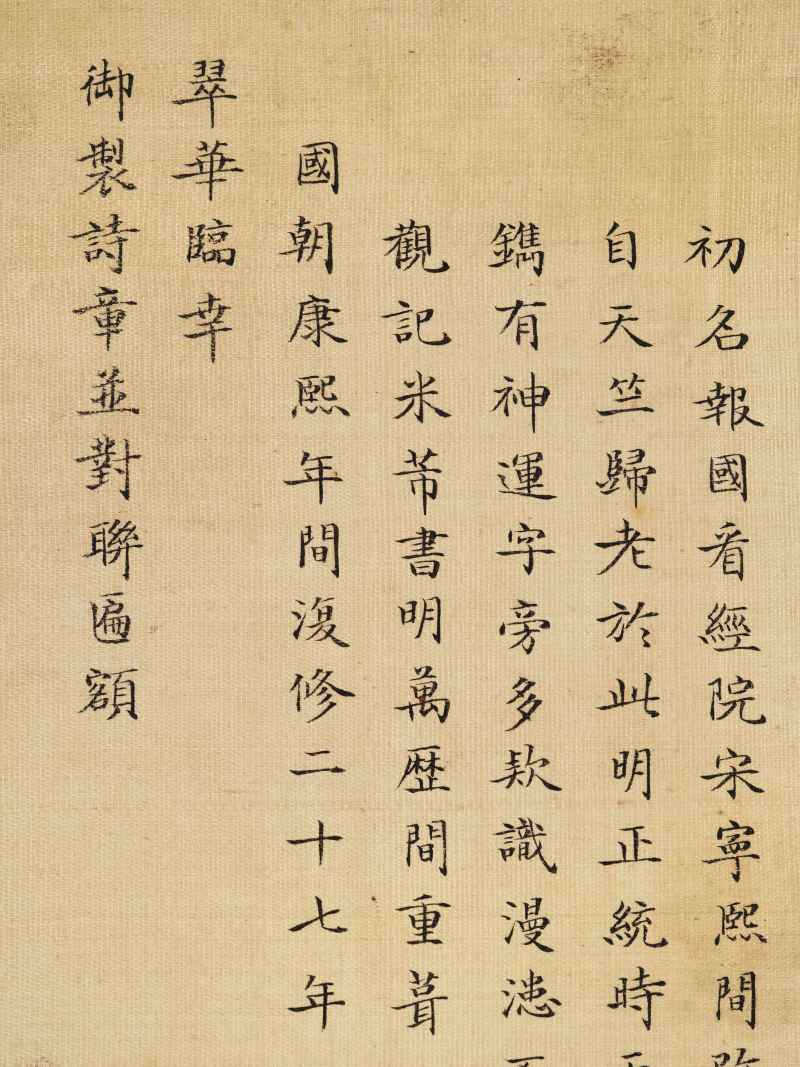 初名報國看經院宋寧熙間改
自天竺歸老於此明正統時
鐫有神運字旁多款識漫漶不
觀記米芾書明萬歴間重葺
國朝康熙年間復修二十七年
翠華臨幸
御製詩章並對聯匾額